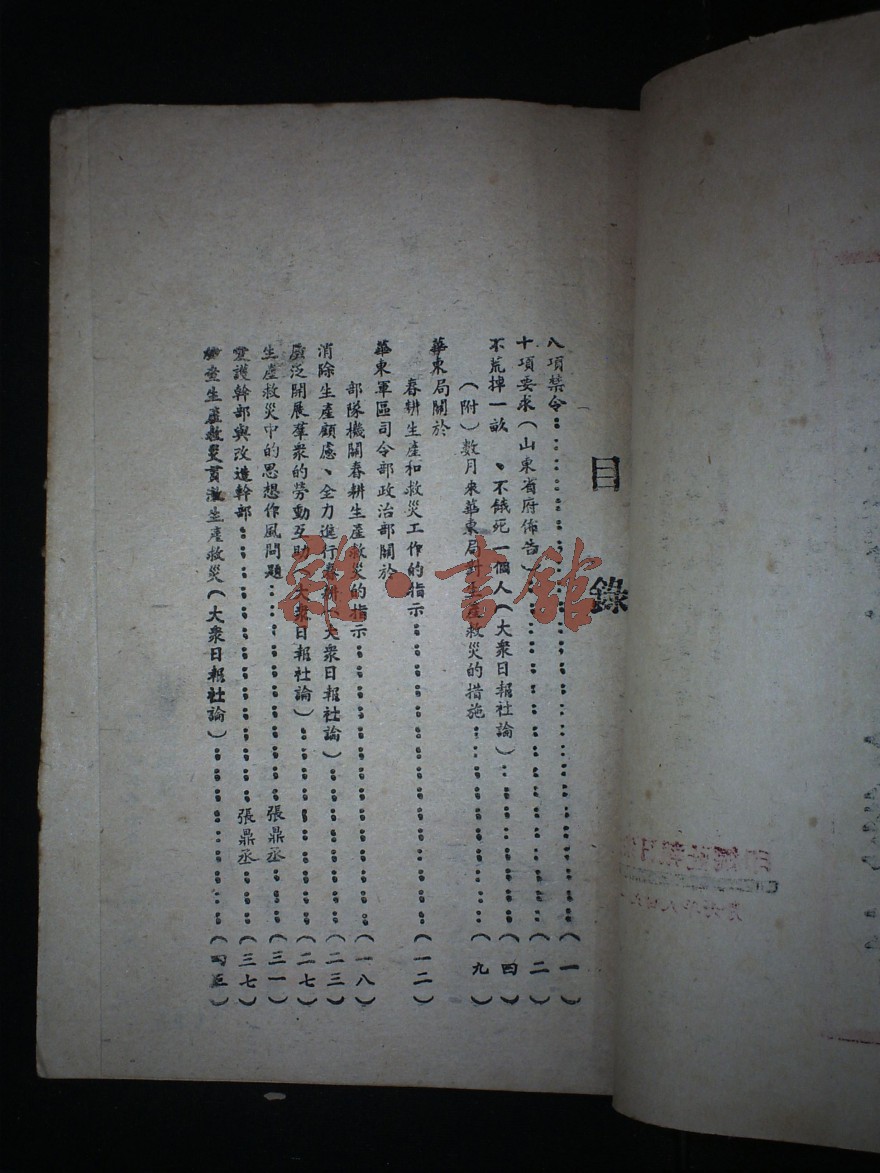 目錄
八項禁令……(一)
十項要求(山東省府佈告)……(二)
不荒掉一畝、不餓死一個人(大衆日報社論)……(四)
(附)數月來華東局對生產救災的措施……(九)
華東局關於
春耕生產和救災工作的指示……(一二)
華東軍區司令部政治部關於
部隊機關春耕生產救災的指示……(一八)
消除生產顧慮、全力進行春耕(大衆日報社論)……(二三)
廣泛開展羣衆的勞動互助(大衆日報社論)……(二七)
生產救災中的思想作風問題……張鼎丞……(三一)
愛護幹部與改造幹部……張鼎丞……(三七)
生產救災貫澈生產救災(大衆日報社論)……(四五)
雜·書館